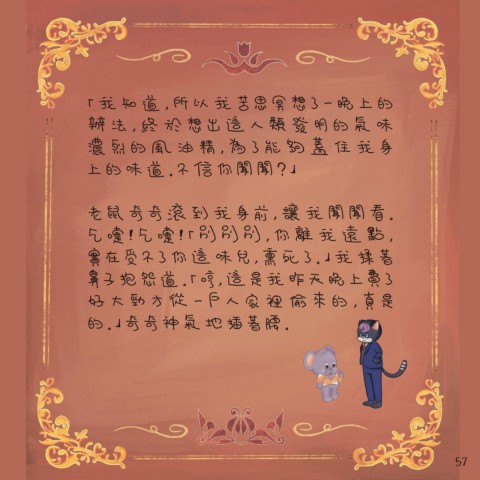 「我知道，所以我苦思冥想了一晚上的
辦法，終於想出這人類發明的氣味
濃烈的風油精，為了能夠蓋住我身
上的味道。不信你聞聞？」
老鼠奇奇滾到我身前，讓我聞聞看。
乞嚏！乞嚏！「別別別，你離我遠點，
實在受不了你這味兒，熏死了。」我揉著
鼻子抱怨道。「哼，這是我昨天晚上費了
好大勁才從一戶人家裡偷來的，真是
的。」奇奇神氣地插著腰。
57